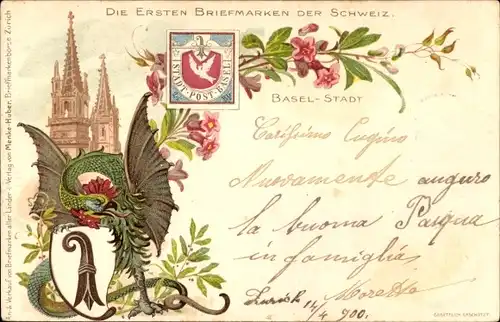 DIE ERSTEN BRIEFMARKEN DER SCHWEIZ.
STADT-POST-BASEL
BASEL-STADT
An- & Verkauf von Briefmarken aller Länder
Verlag von Menke-Huber, Briefmarkenbörse, Zürich
Carissimo Cugino
Nuovamente auguro
la buona Pasqua
in famiglia
Zurich 14/4 900.
Moretto
GESETZLICH GESCHÜTZT